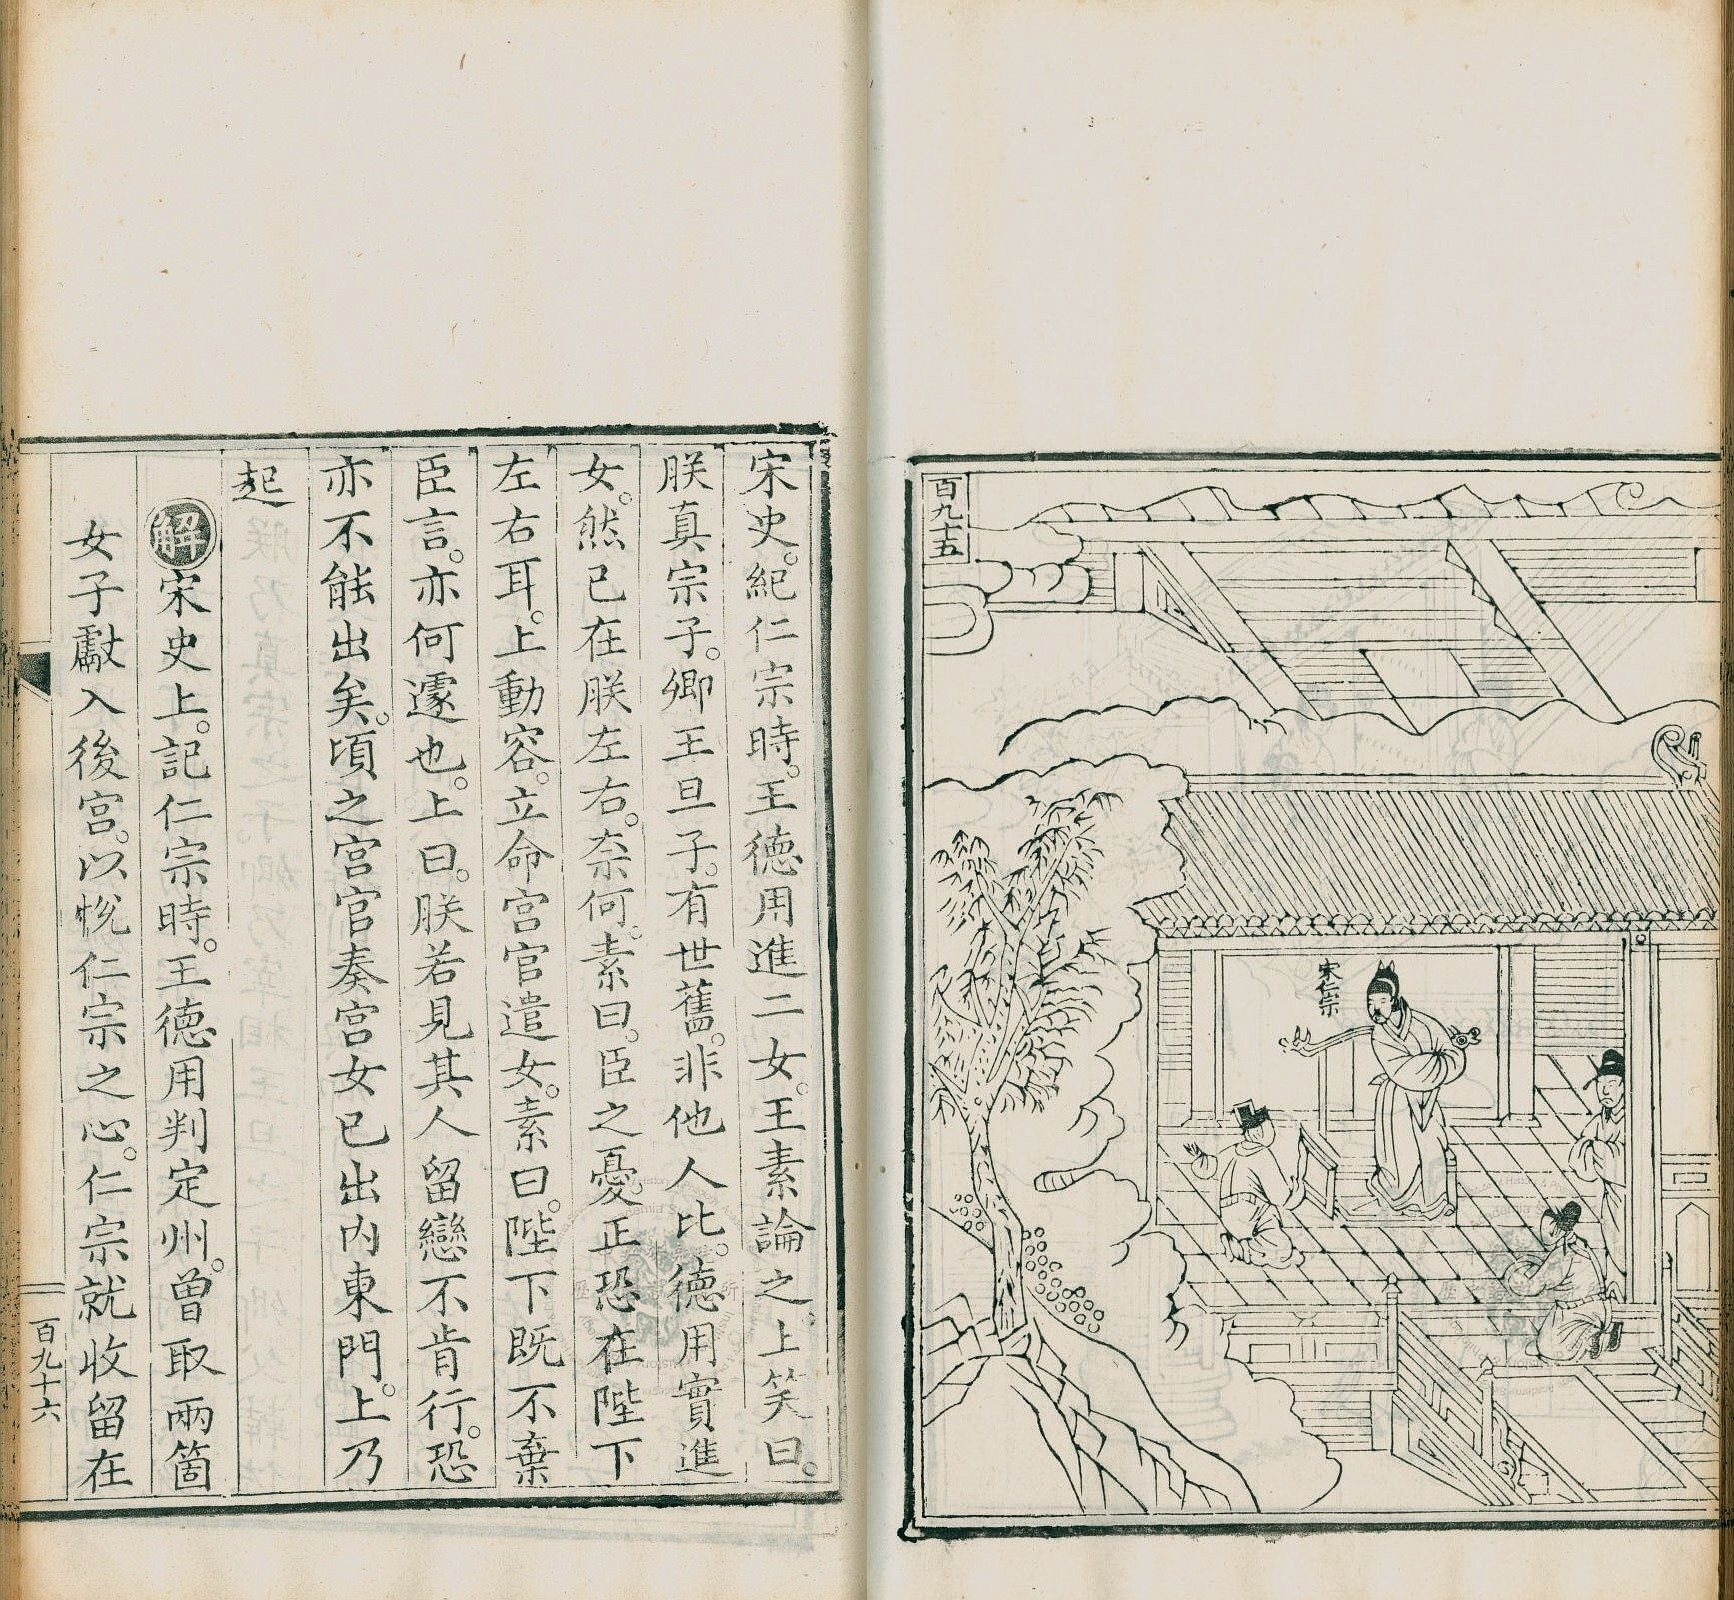 百九十五
宋仁宗
宋史。紀仁宗時。王德用進二女。王素論之。上笑曰。
朕真宗子。卿王旦子。有世舊。非他人比。德用實進
女。然已在朕左右。奈何。素曰。臣之憂。正恐在陛下
左右耳。上動容。立命宮官遣女。素曰。陛下既不棄
臣言。亦何遽也。上曰。朕若見其人留戀不肯行。恐
亦不能出矣。頃之宮官奏宮女已出內東門。上乃
起
解宋史上。記仁宗時。王德用判定州。曾取兩箇
女子獻入後宮。以悅仁宗之心。仁宗就收留在
百九十六